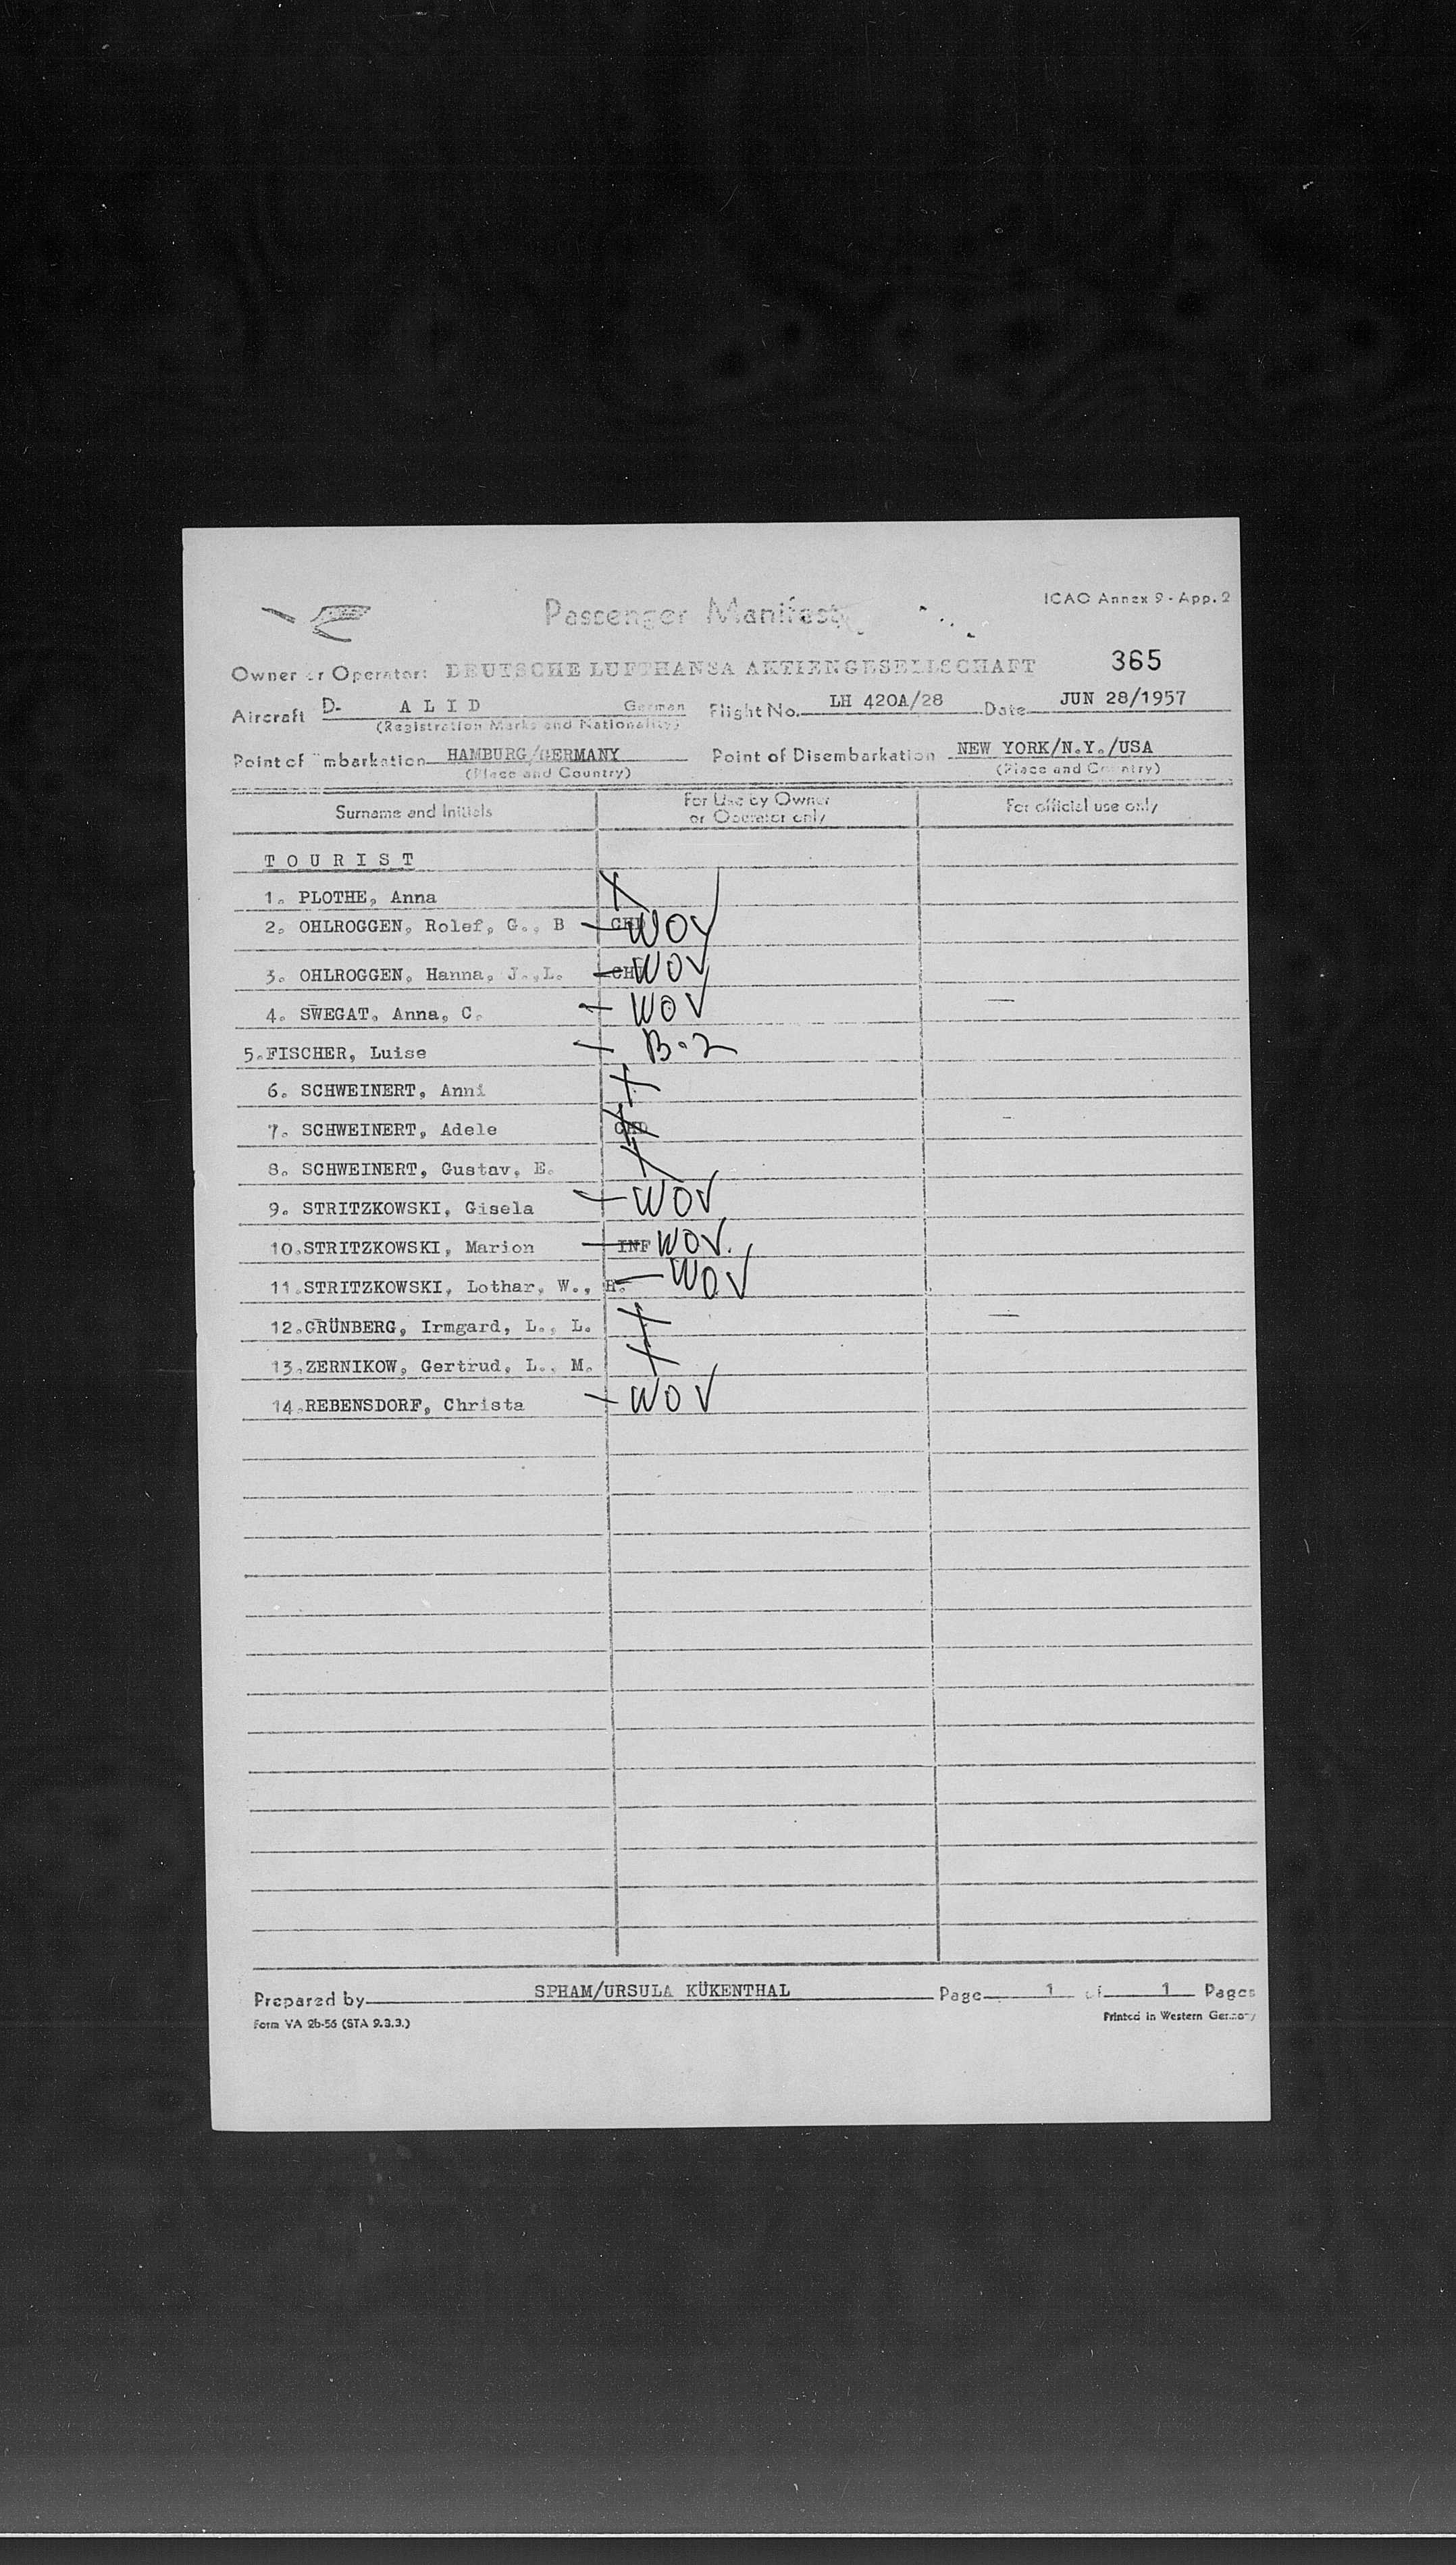 Passenger Manifest
ICAO Annex 9 - App. 2
Owner or Operator: DEUTSCHE LUFTHANSA AKTIENGESELLSCHAFT
365
Aircraft D- A L I D German Flight No. LH 420A/28 Date JUN 28/1957
(Registration Marks and Nationality)
Point of Embarkation HAMBURG/GERMANY Point of Disembarkation NEW YORK/N.Y./USA
(Place and Country) (Place and Country)
Surname and Initials For Use by Owner or Operator only For official use only
T O U R I S T
1. PLOTHE, Anna X
2. OHLROGGEN, Rolef, G., B — CHD WOV
3. OHLROGGEN, Hanna, J.,L. — CHD WOV
4. SWEGAT, Anna, C. — WOV
5.FISCHER, Luise — B-2
6. SCHWEINERT, Anni X
7. SCHWEINERT, Adele CHD X
8. SCHWEINERT, Gustav, E. X
9. STRITZKOWSKI, Gisela — WOV
10.STRITZKOWSKI, Marion — INF WOV.
11.STRITZKOWSKI, Lothar, W., H. — WOV
12.GRÜNBERG, Irmgard, L., L. X
13.ZERNIKOW, Gertrud, L., M. X
14.REBENSDORF, Christa — WOV
Prepared by SPHAM/URSULA KÜKENTHAL Page 1 of 1 Pages
Form VA 2b-56 (STA 9.3.3.) Printed in Western Germany